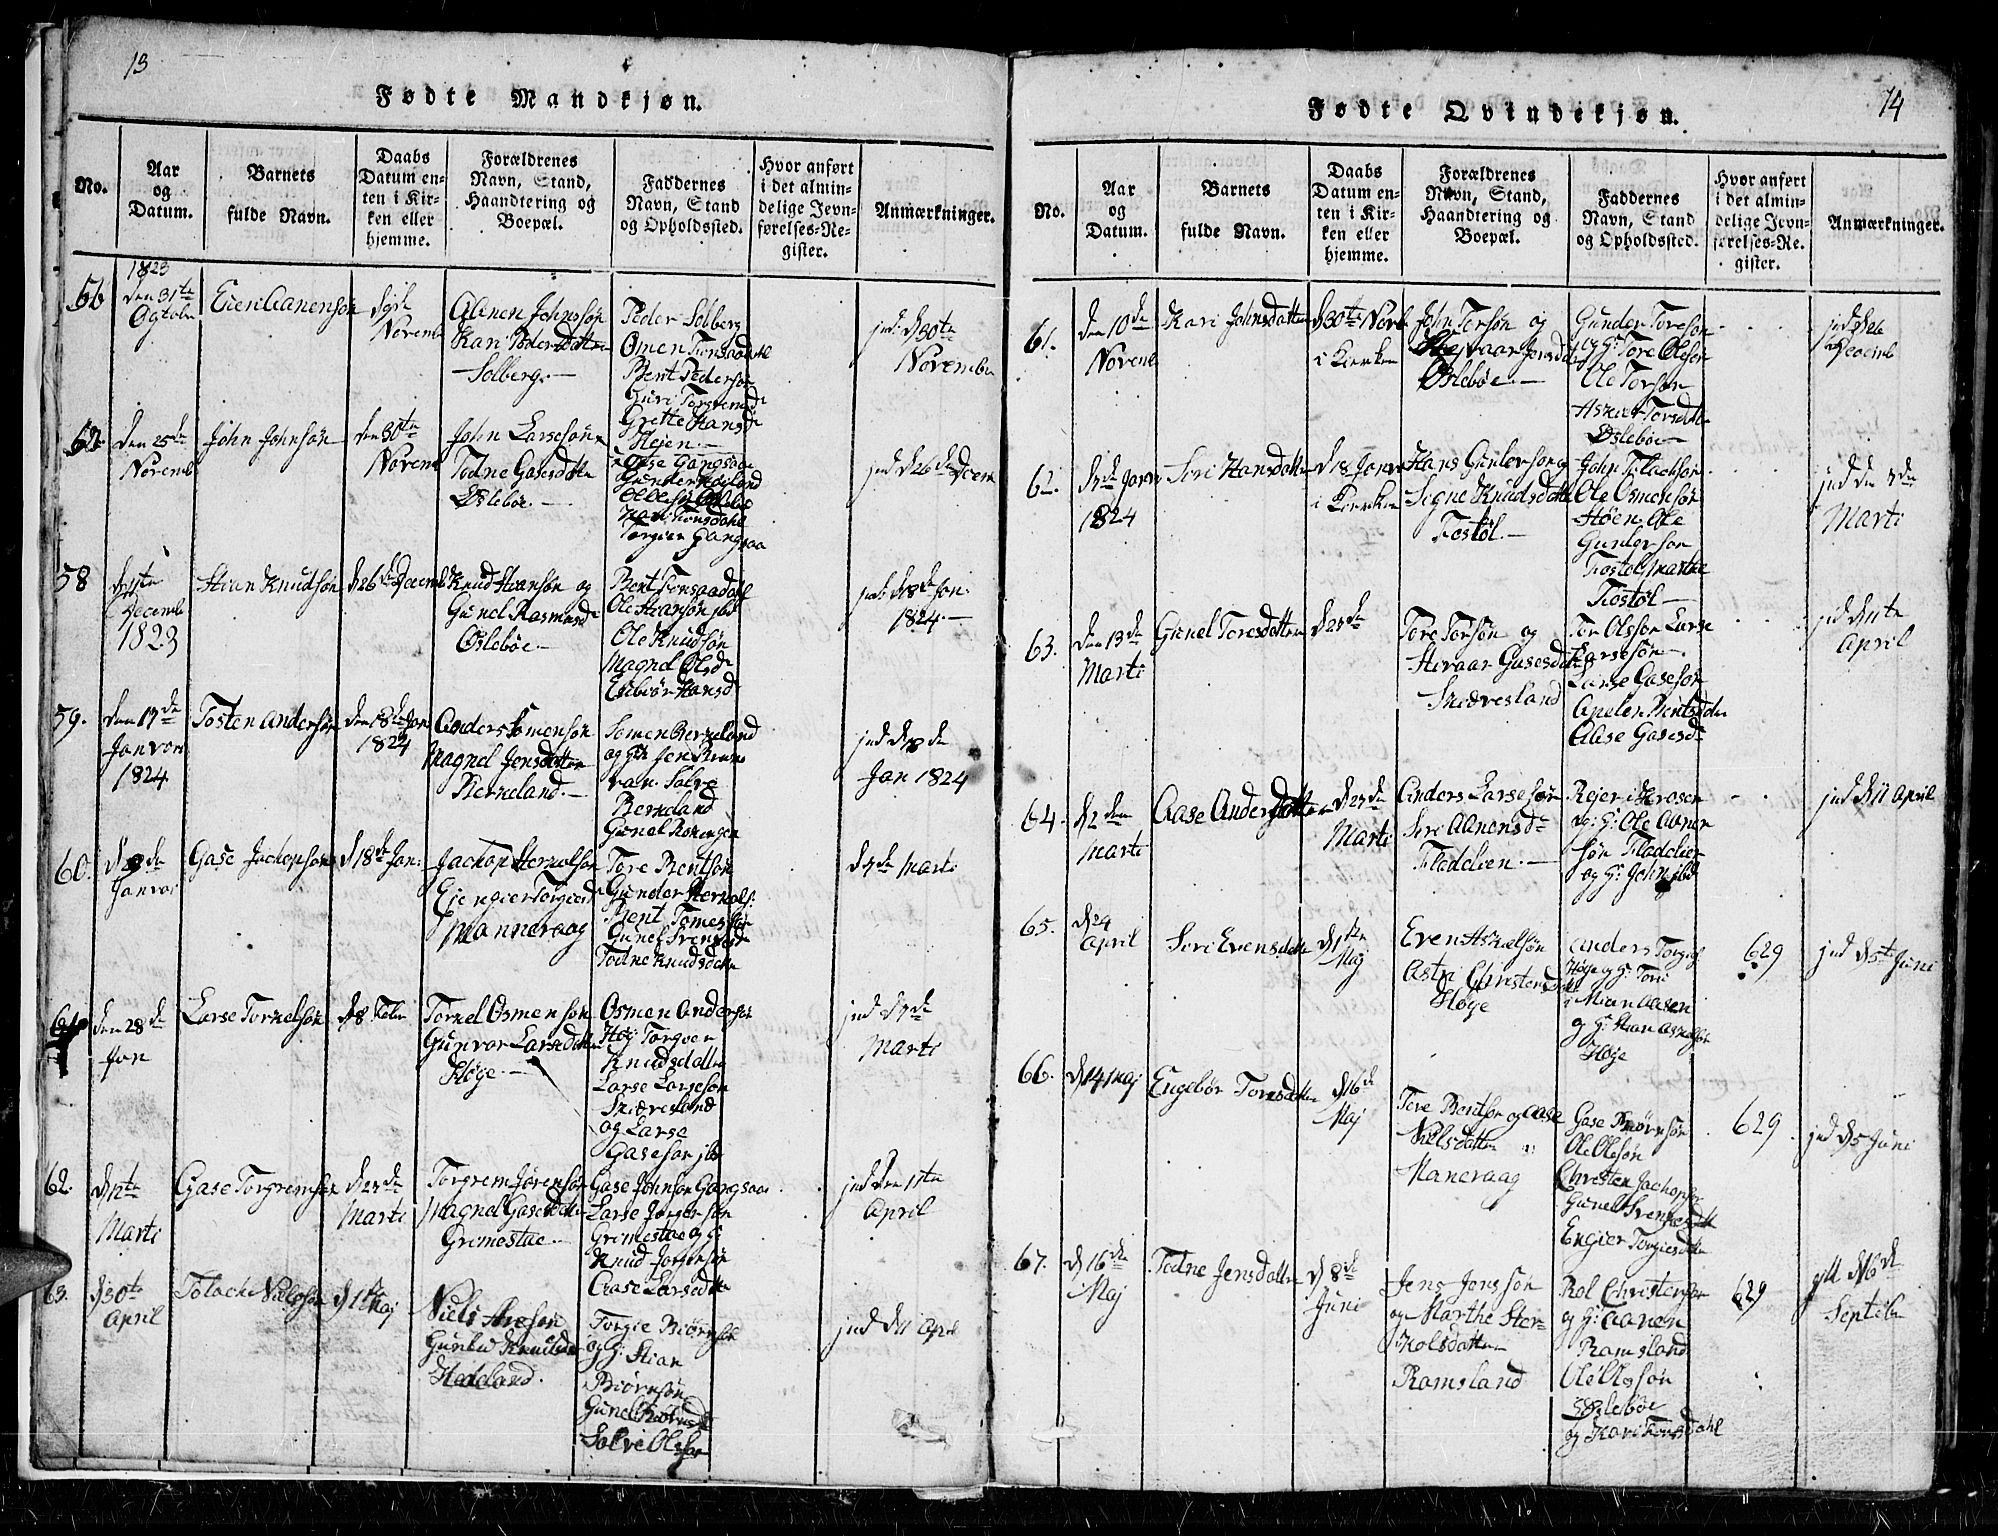 13
Fødte Mandkjøn.
No.
Aar
og
Datum.
Barnets
fulde Navn.
Daabs
Datum en-
ten i Kir-
ken eller
hjemme.
Forældrenes
Navn, Stand,
Haandtering og
Boepæl.
Faddernes
Navn, Stand
og Opholdssted.
Hvor anført
i det almin-
delige Jevn-
førelses-Re-
gister.
Anmærkninger.
1823
den 31te
Octobr
Novemb
Aanen Johnssøn
Kari Pedersdatter
Solberg.
Peder Solberg
Omen Tonsaadahl
Bent Pedersøn
Guri Torgremsd
Grette Hansd
Høien
jnd: d 30te
Novembr
den 25de
Novemb
John Johnsøn
den 30te
Novemb
John Larsesøn
Todne Gasesdatter
Øslebøe.
Torgier Gangsaa
jnd d 26de Decem
58
d 1ste
Decemb
1823
Stian Knudsøn
d 26de Decemb
Knud Stiansøn og
Gunel Rasmusd
Øslebøe
Bent Tonsaadahl
Ole Stiansøn jbd
Ole Knudsøn
Magnel Olsd
Enbiør Hansd
jnd d 18de Jan:
1824.
59.
den 17de
Janvar
1824
Tosten Andersøn
den 18de Jan
1824
Anders Somensøn
Magnel Jensdatter
Berkeland.
Somen Berkeland
og G: Jen
van Salve
Berkeland
jnd d 18de
Jan 1824
60.
Janvar
Gase Jachopsøn
d 18de Jan:
Jachop Sterkolsøn
Eiengier Torgiesd
Manneraag
Tore Bentsøn
Gunder Sterkols:
Bent Tomessøn
Gunel Svensd
Todne Knudsdatter
d 7de Marti
den 28de
Jan
Larse Torkelsøn
d 8. Febr
Torkel Osmensøn
Gunvor Larsedatter
Høge.
Osmen Andersøn
Høy Torgver
Knudsdatter
Larse Larsesøn
Skiævesland
og Larse
Gasesøn jbd
jnd d 7de
Marti
62.
d 12te
Marti
Gase Torgremsøn
d 23de
Marti
Torgrem Jørensøn
Magnel Gasesdatter
Grimestae.
Gase Johnsøn Gangsaa
Larse Jørgensøn
Grimestae og G:
Knud Jørgensøn
Aase Larsedatter
jnd den 11te
April
63.
d 30te
April
Tolach Nielssøn
d 1ste Maj
Niels Aresøn
Gunlu Knudsd
Hedeland.
Torgie Biørnsøn
og G: Stian
Biørnsøn
Gunel Biørnsd
Salve Olsøn
jnd d 11 April
14
Fødte Qvindekjøn.
No.
Aar
og
Datum.
Barnets
fulde Navn.
Daabs
Datum en-
ten i Kir-
ken eller
hjemme.
Forældrenes
Navn, Stand,
Haandtering og
Boepæl.
Faddernes
Navn, Stand
og Opholdssted.
Hvor anført
i det almin-
delige Jevn-
førelses-Re-
gister.
Anmærkninger.
61.
den 10de
Novemb
Kari Johnsdatter
d 30te Novb
i Kierken
John Torsøn og
Stevaar Jensdatter
Øslebøe.
Gunder Toresøn
og G: Tore Olesøn
Ole Torsøn
Askier Torsdatter
Øslebøe
Decemb
62.
d 3de Janv
1824
Siri Hansdatter
d 18 Janv
i Kierken
Hans Gunlevsøn og
Signe Knudsdatter
Fostøl.
John Tolachsøn
Ole Osmensøn
Høen Ole
Gunlevsøn
Fostøl Marthe
Fostøl
jnd den 7de
Marti
63.
den 13de
Marti
Gunel Toresdatter
d 23de
Tore Torsøn og
Stevaar Gasesdatter
Skiævesland
Tor Olssøn Larse
Larsesøn.
Larse Gasesøn
Apelen Bentsdatter
Aase Gasesd
jnd d 11te
April
64.
d 2den
Marti
Aase Andersdatter
d 23de
Marti
Anders Larsesøn
Siri Aanensd
Fladelien.
Rejer
og G: Ole Aanen
søn Fladelien
og G: John jbd
jnd d 11 April
65.
d 24
April
Siri Evensdatter
d 1ste
Maj
Even Askielsøn
Astri Christensd
Høge
Anders Torgies
Høge og G: Tore
i Mian Aasen
og G: Stian Askelsøn
Høge
629
jnd d 5te Juni
66.
d 14 Maj
Engebør Toresdatter
d 16de
Maj
Tore Bentsøn og Aase
Nielsdatter
Maneraag
Gase Biørnsøn
Ole Olesøn
Christen Jachopsøn
Gunel Svensdatter
Engier Torgiesdatter
629.
jnd d 5 Juni
67.
d 16de
Maj
Todne Jensdatter
d 8de
Juni
Jens Jenssøn
og Marthe Ster-
kolsdatter
Ramsland
Rol Christensøn
og G: Aanen
Ramsland
Ole Olssøn
Øslebøe
og Kari Tonsdahl
629
jnd d 16de
Septibr